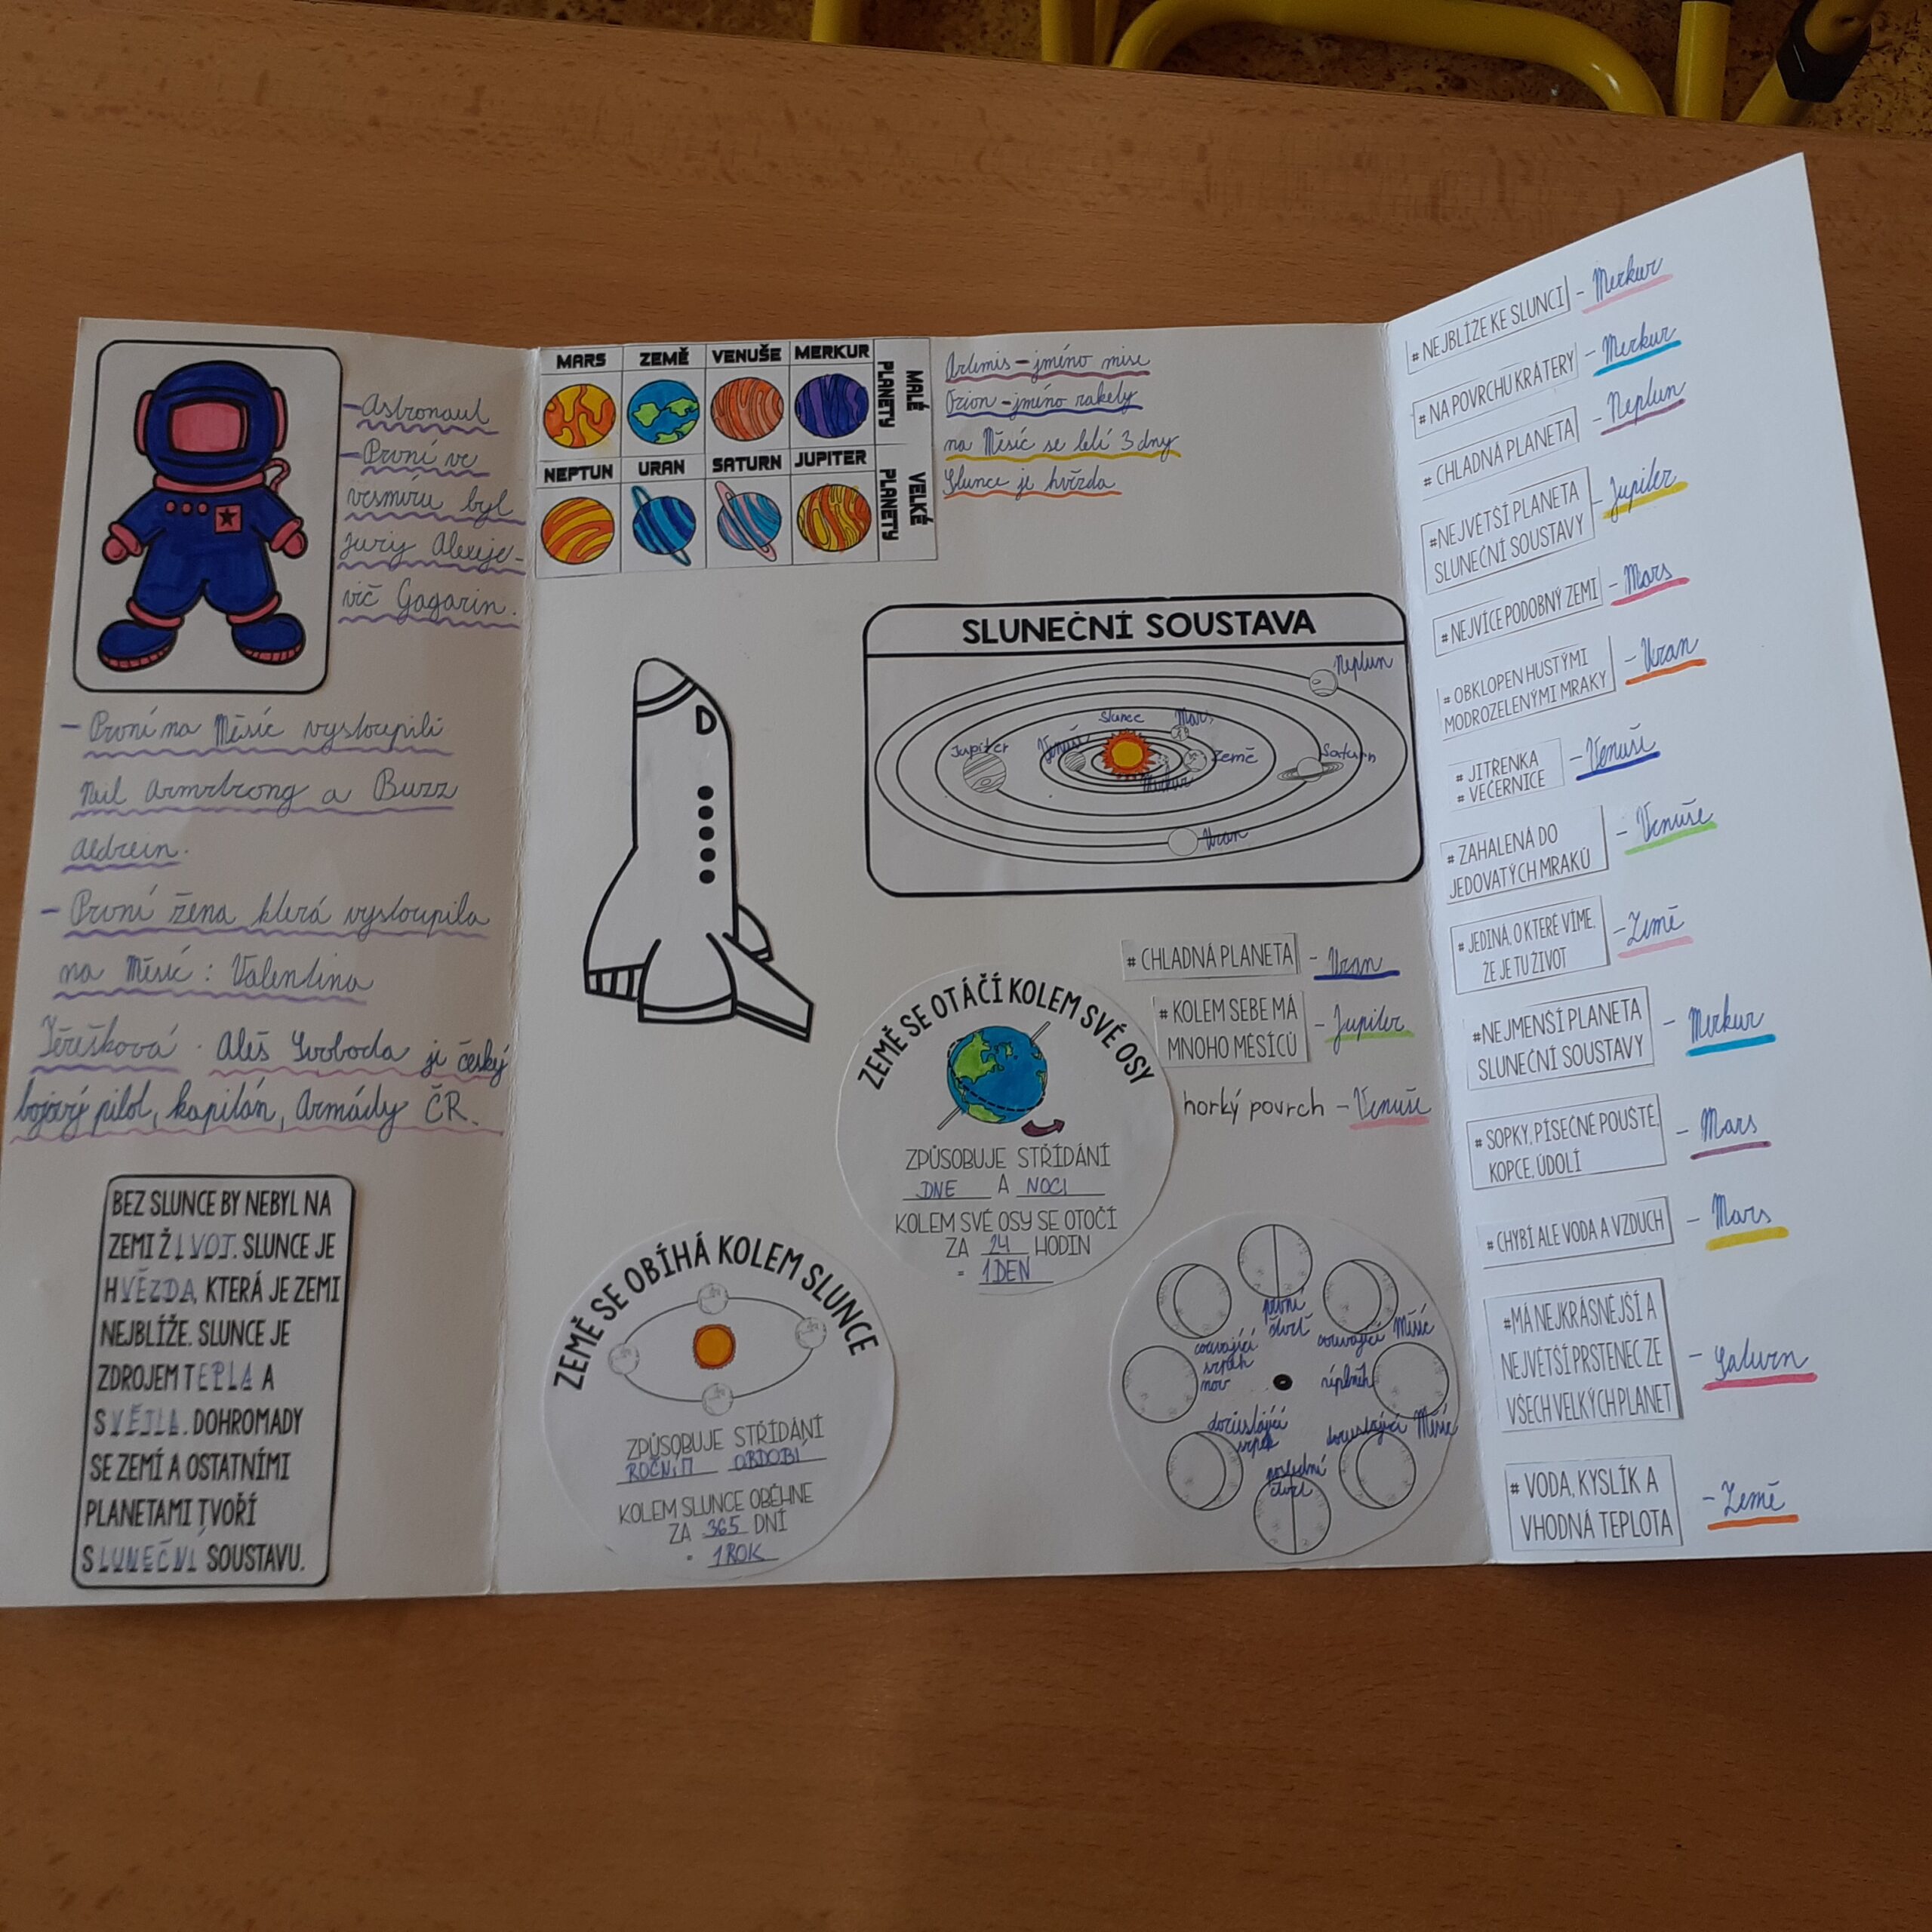 -Astronaut
-První ve
vesmíru byl
Jurij Alexeje-
vič Gagarin.
- První na Měsíc vystoupili
Neil Armstrong a Buzz
Aldrein.
- První žena která vystoupila
na Měsíc: Valentina
Těrešková. Aleš Svoboda je český
bojový pilot, kapitán, Armády ČR.
BEZ SLUNCE BY NEBYL NA
ZEMI ŽIVOT. SLUNCE JE
HVĚZDA, KTERÁ JE ZEMI
NEJBLÍŽE. SLUNCE JE
ZDROJEM TEPLA A
SVĚTLA. DOHROMADY
SE ZEMÍ A OSTATNÍMI
PLANETAMI TVOŘÍ
SLUNEČNÍ SOUSTAVU.
MARS ZEMĚ VENUŠE MERKUR
MALÉ
PLANETY
NEPTUN URAN SATURN JUPITER
VELKÉ
PLANETY
Artemis - jméno mise
Orion - jméno rakety
na Měsíc se letí 3 dny
Slunce je hvězda
SLUNEČNÍ SOUSTAVA
Neptun
Slunce
Mars
Jupiter
Venuše
Země
Saturn
Merkur
Uran
# CHLADNÁ PLANETA - Uran
# KOLEM SEBE MÁ
MNOHO MĚSÍCŮ - Jupiter
horký povrch - Venuše
ZEMĚ SE OTÁČÍ KOLEM SVÉ OSY
ZPŮSOBUJE STŘÍDÁNÍ
DNE A NOCI
KOLEM SVÉ OSY SE OTOČÍ
ZA 24 HODIN
= 1 DEN
ZEMĚ SE OBÍHÁ KOLEM SLUNCE
ZPŮSOBUJE STŘÍDÁNÍ
ROČNÍ OBDOBÍ
KOLEM SLUNCE OBĚHNE
ZA 365 DNÍ
= 1 ROK
první
čtvrt
couvající
srpek
couvající Měsíc
nov
úplněk
dorůstající
srpek
dorůstající Měsíc
poslední
čtvrt
# NEJBLÍŽE KE SLUNCI - Merkur
# NA POVRCHU KRÁTERY - Merkur
# CHLADNÁ PLANETA - Neptun
#NEJVĚTŠÍ PLANETA
SLUNEČNÍ SOUSTAVY - Jupiter
# NEJVÍCE PODOBNÝ ZEMI - Mars
# OBKLOPEN HUSTÝMI
MODROZELENÝMI MRAKY - Uran
# JITŘENKA
# VEČERNICE - Venuše
# ZAHALENÁ DO
JEDOVATÝCH MRAKŮ - Venuše
# JEDINÁ, O KTERÉ VÍME,
ŽE JE TU ŽIVOT - Země
#NEJMENŠÍ PLANETA
SLUNEČNÍ SOUSTAVY - Merkur
# SOPKY, PÍSEČNÉ POUŠTĚ,
KOPCE, ÚDOLÍ - Mars
# CHYBÍ ALE VODA A VZDUCH - Mars
#MÁ NEJKRÁSNĚJŠÍ A
NEJVĚTŠÍ PRSTENEC ZE
VŠECH VELKÝCH PLANET - Saturn
# VODA, KYSLÍK A
VHODNÁ TEPLOTA - Země